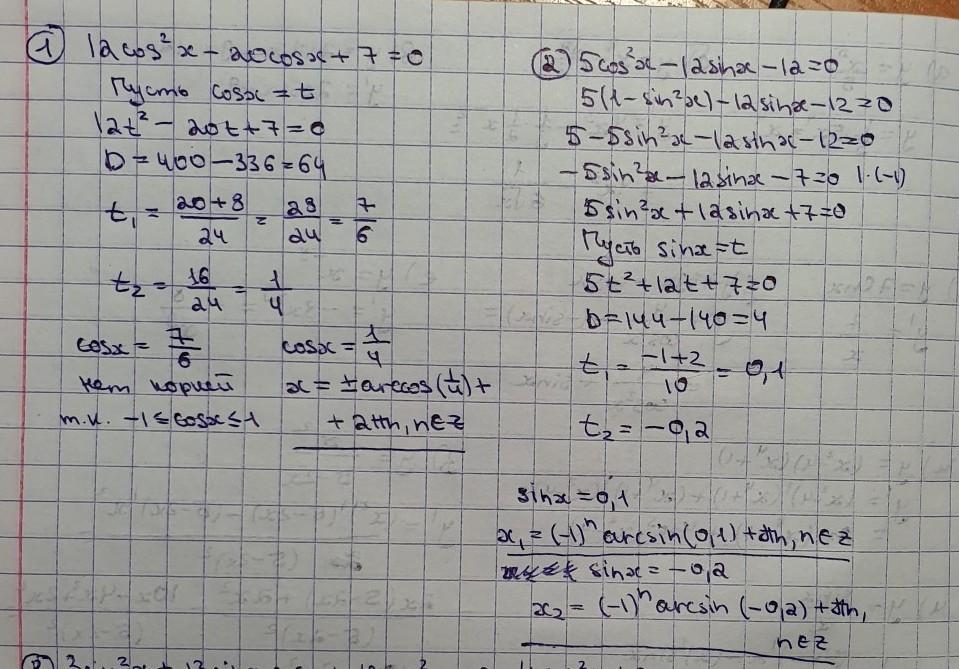 ① 12cos²x – 20cosx + 7 = 0
Пусть cosx = t
12t² – 20t + 7 = 0
D = 400 – 336 = 64
t₁ = (20+8)/24 = 28/24 = 7/6
t₂ = 16/24 = 1/4
cosx = 7/6
нет корней
т.к. -1 ≤ cosx ≤ 1
cosx = 1/4
x = ± arccos(1/4) +
+ 2πn, n∈z
② 5cos²x – 12sinx – 12 = 0
5(1 – sin²x) – 12sinx – 12 = 0
5 – 5sin²x – 12sinx – 12 = 0
– 5sin²x – 12sinx – 7 = 0 |·(-1)
5sin²x + 12sinx + 7 = 0
Пусть sinx = t
5t² + 12t + 7 = 0
D = 144 – 140 = 4
t₁ = (-1+2)/10 = 0,1
t₂ = -0,2
sinx = 0,1
x₁ = (-1)ⁿ arcsin(0,1) + πn, n∈z
sinx = -0,2
x₂ = (-1)ⁿ arcsin(-0,2) + πn,
n∈z